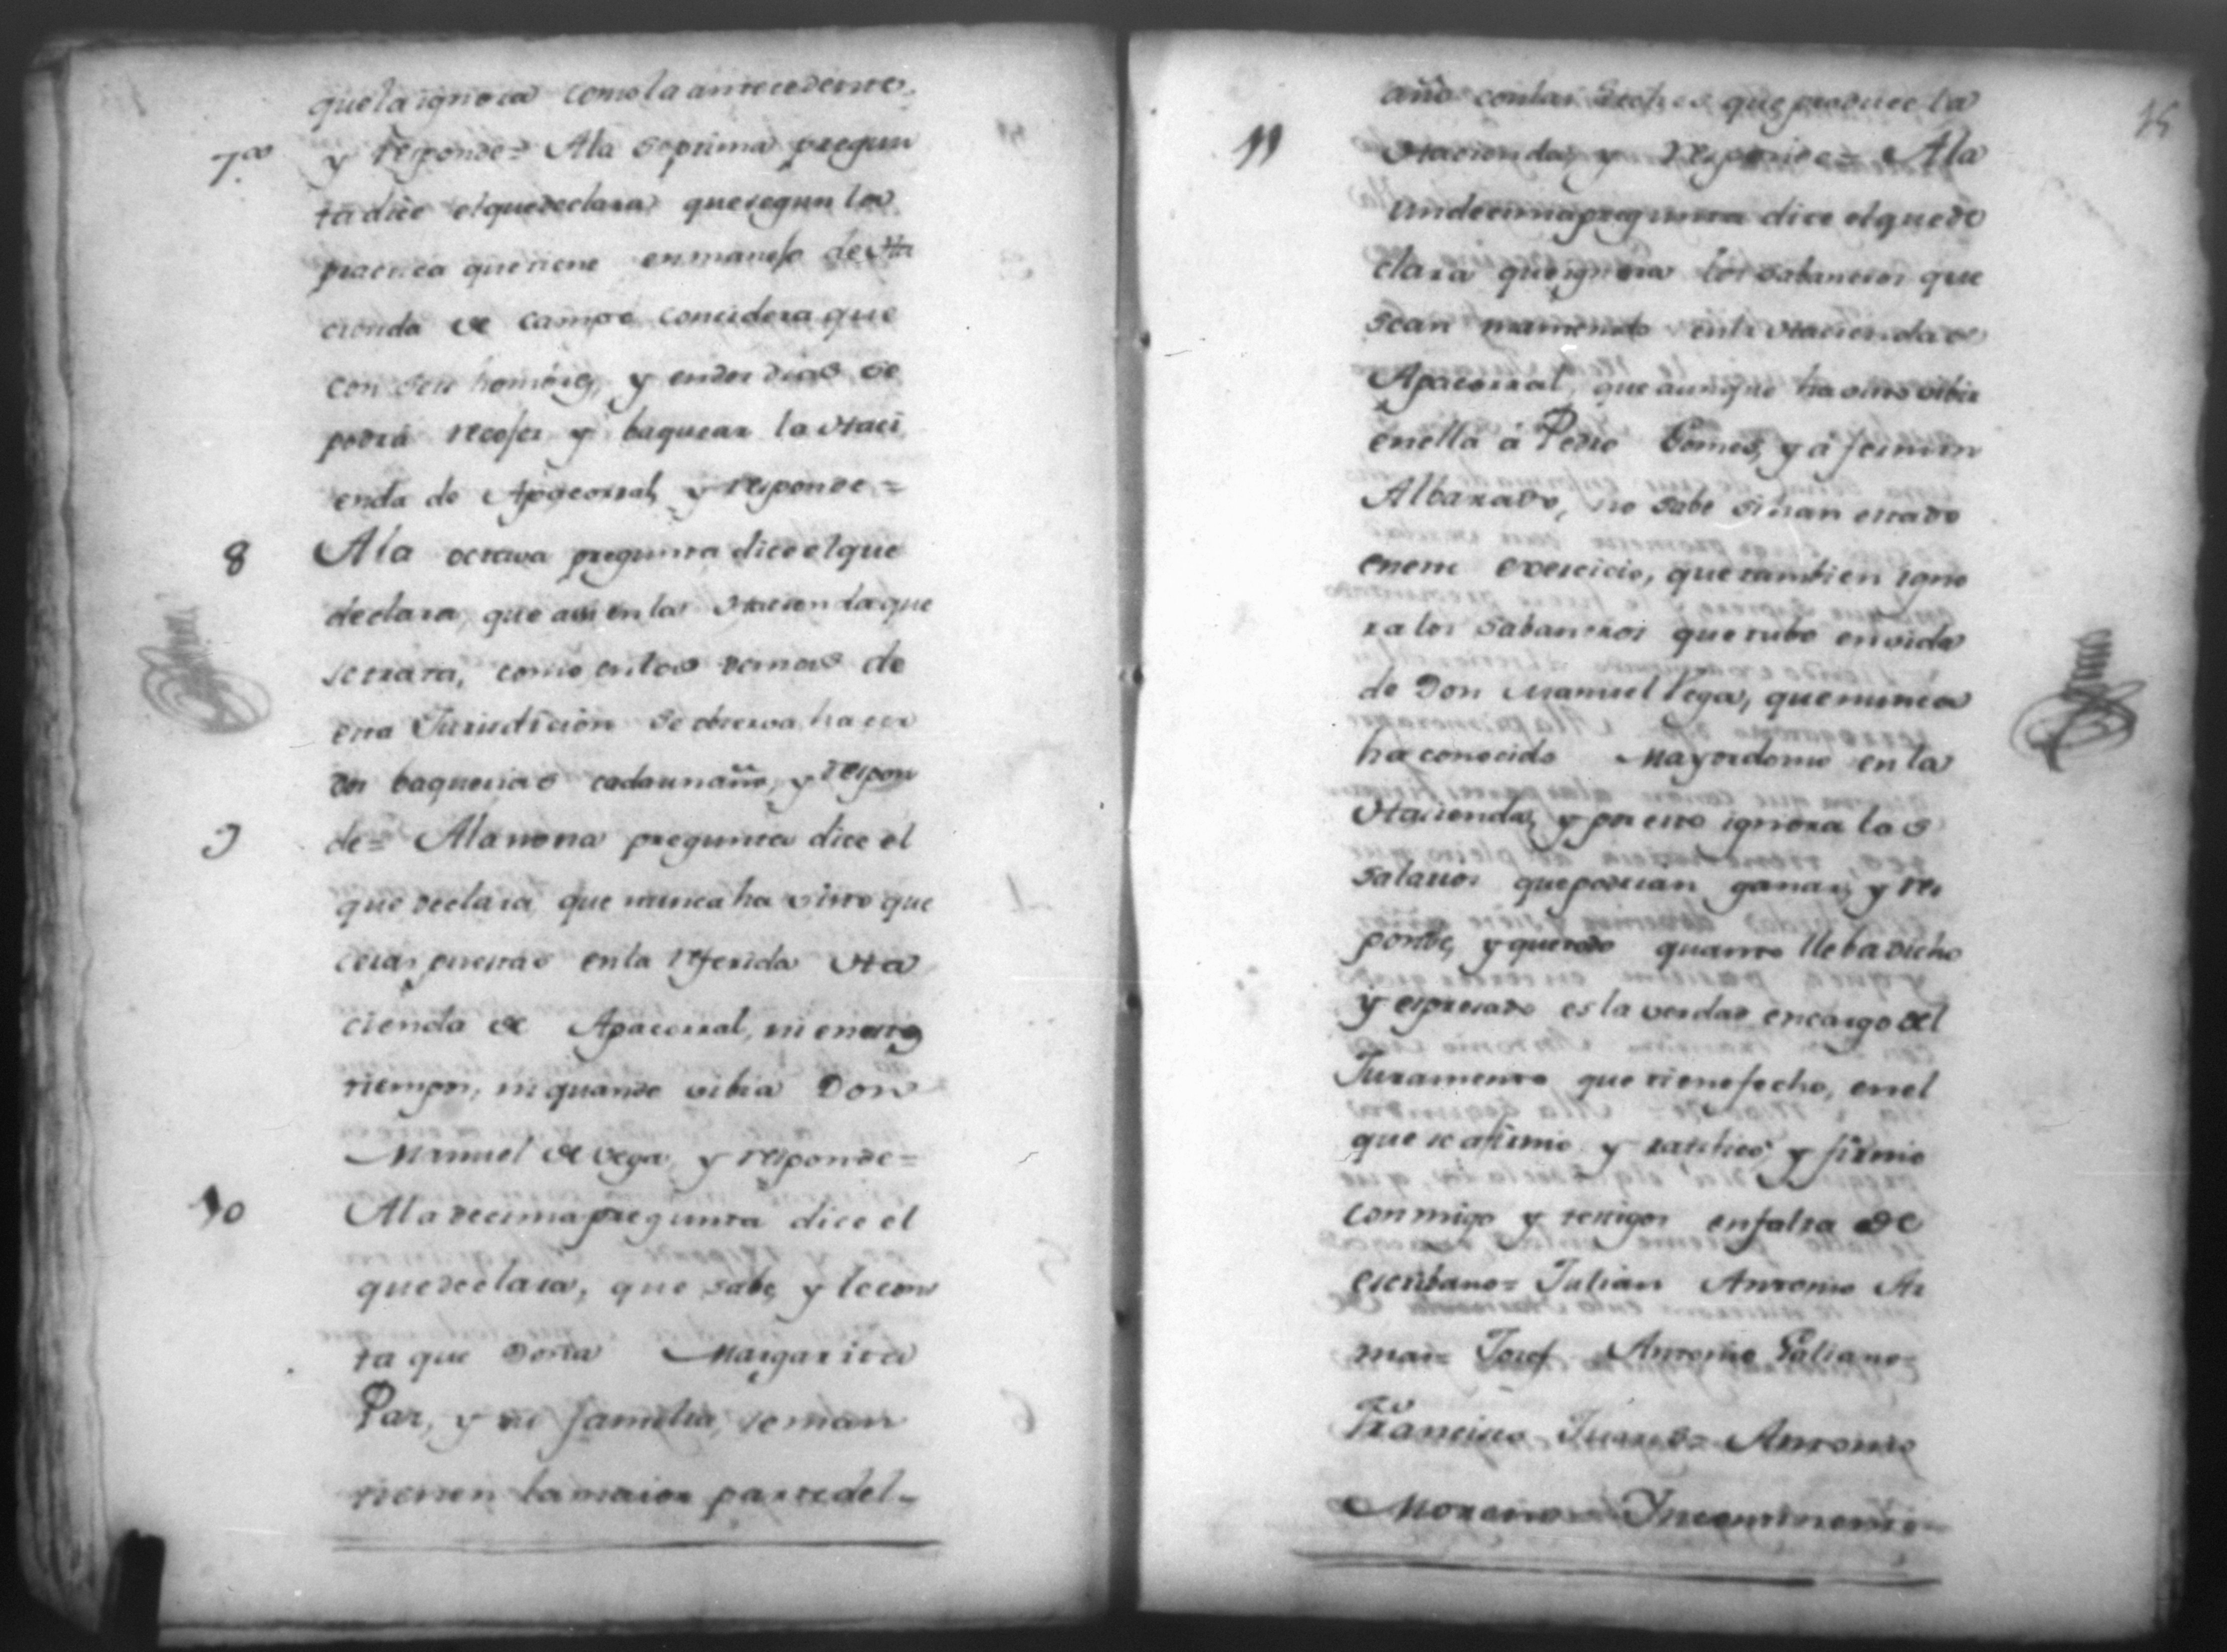 que la ignora como la antecedente,
7.ª y responde= Ala septima pregun
ta dice el que declara que segun la
practica que tiene en manejo de Ha
cienda de campo considera que
con seis hombres, y en dos dias se
podrá recojer y baquear la Haci
enda de Apacorral, y responde=
8 Ala octava pregunta dice el que
declara, que asi en la Hacienda que
se trata, como en las demas de
esta Jurisdicion se observa hacer
dos baquerias cada un año, y respon
9 de= Ala nona pregunta dice el
que declara, que nunca ha visto que
seras puestas en la referida Ha
cienda de Apacorral, ni en estos
tiempos, ni quando vibia Don
Manuel de Vega, y responde=
10 Ala decima pregunta dice el
que declara, que sabe, y le cons
ta que Doña Margarita
Paz, y su familia, se man
tienen la maior parte del
15
año con las leches que produce la
11 Hacienda, y responde= Ala
undecima pregunta dice el que de
clara que ignora los sabaneros que
sean mantenido en la Hacienda de
Apacorral, que aunque ha visto vibir
en ella á Pedro Gomes, y á fermin
Albarado, no sabe si han estado
en este exercicio, que tambien igno
ra los sabaneros que tubo en vida
de Don Manuel Vega, que nunca
ha conocido Mayordomo en la
Hacienda, y por esto ignora los
salarios que podrian ganar, y res
ponde, y que todo quanto lleba dicho
y expresado es la verdad en cargo del
Juramento que tiene fecho, en el
que se afirmó y ratificó, y firmó
conmigo y testigos en falta de
escribano= Julian Antonio Ar
mas= Josef Antonio Galiano=
Francisco Jurado= Antonio
Moreno= Yncontinenti